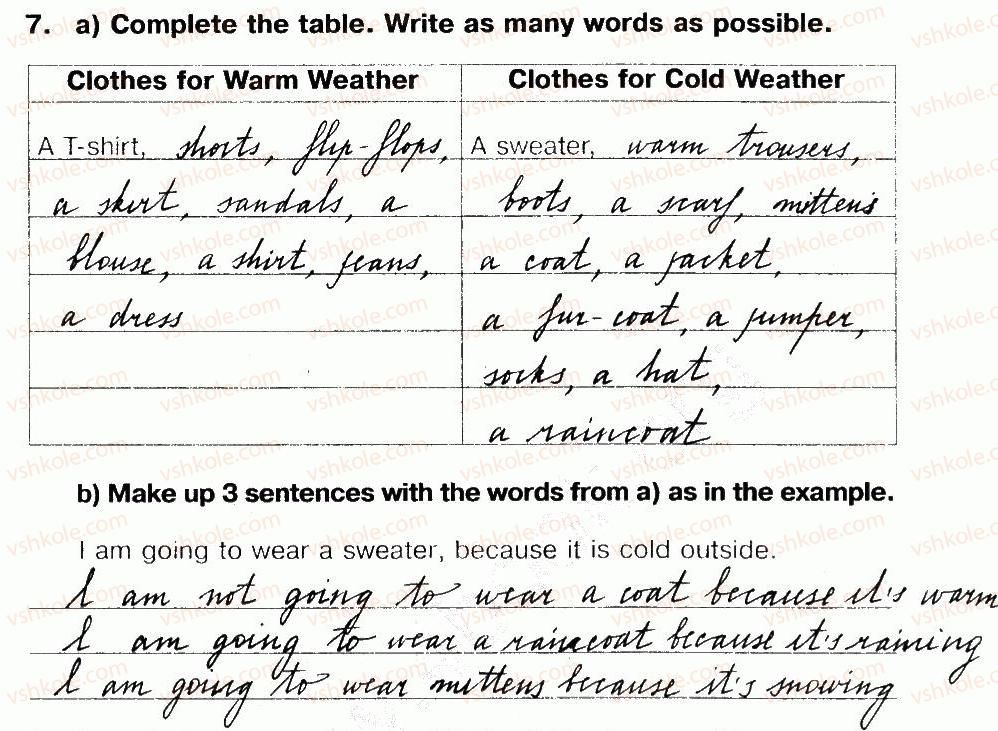 7. a) Complete the table. Write as many words as possible.
Clothes for Warm Weather
A T-shirt, shorts, flip-flops,
a skirt, sandals, a
blouse, a shirt, jeans,
a dress
Clothes for Cold Weather
A sweater, warm trousers,
boots, a scarf, mittens
a coat, a jacket,
a fur-coat, a jumper,
socks, a hat,
a raincoat
b) Make up 3 sentences with the words from a) as in the example.
I am going to wear a sweater, because it is cold outside.
I am not going to wear a coat because it's warm
I am going to wear a raincoat because it's raining
I am going to wear mittens because it's snowing
vshkole.com